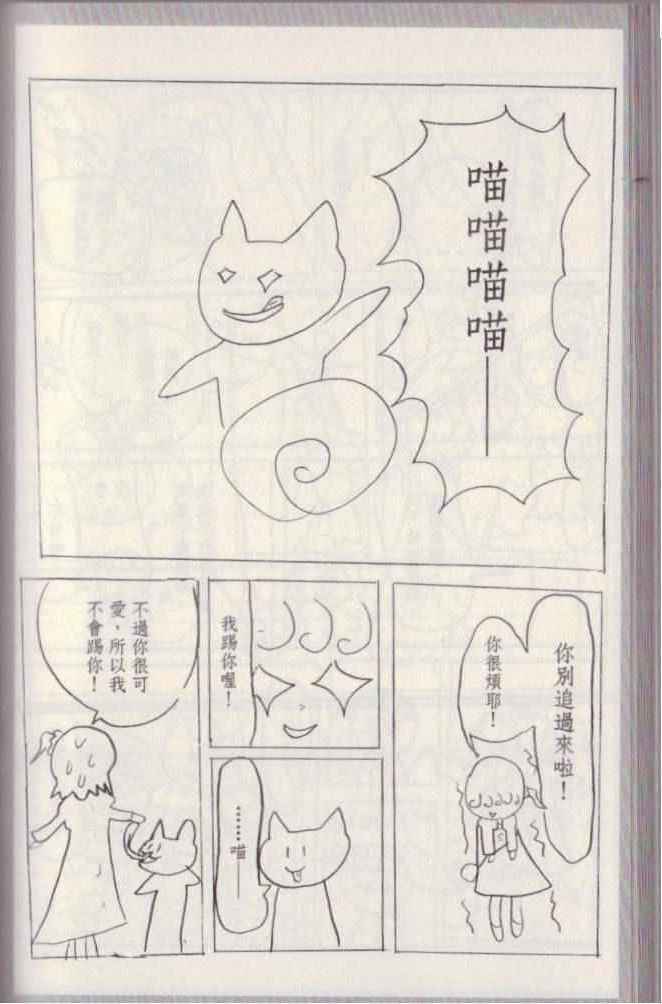 喵喵喵喵——
你別追過來啦！
你很煩耶！
我踢你喔！
⋯⋯喵——
不過你很可
愛，所以我
不會踢你！